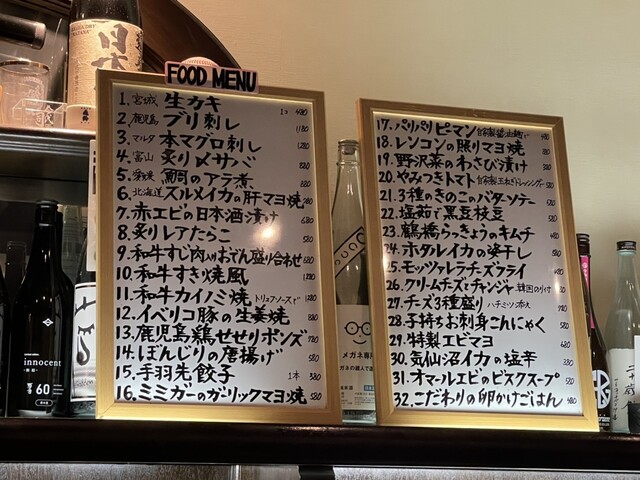 FOOD MENU
1. 宮城 生カキ 1コ 480
2. 鹿児島 ブリ刺し 1180
3. マルタ 本マグロ刺し 1280
4. 富山 炙り〆サバ 880
5. 愛媛 鯛のアラ煮 880
6. 北海道 スルメイカの肝マヨ焼 780
7. 赤エビの日本酒漬け 680
8. 炙りレアたらこ 580
9. 和牛すじ肉入りおでん盛り合わせ 680
10. 和牛すき焼風
11. 和牛カイノミ焼 トリュフソースで
12. イベリコ豚の生姜焼 880
13. 鹿児島鶏せせりポンズ 780
14. ぼんじりの唐揚げ 580
15. 手羽先餃子 1本 380
16. ミミガーのガーリックマヨ焼 580
17. パリパリピーマン
18. レンコンの照りマヨ焼 480
19. 野沢菜のわさび漬け
20. やみつきトマト 自家製玉ねぎドレッシング
21. 3種のきのこのバターソテー 580
22. 塩茹で黒豆枝豆 580
23. 鶴橋らっきょうのキムチ 480
24. ホタルイカの姿干し 580
25. モッツァレラチーズフライ
26. クリームチーズとチャンジャ 韓国のり付
27. チーズ3種盛り ハチミツ添え
28. 子持ちお刺身こんにゃく 580
29. 特製エビマヨ 680
30. 気仙沼イカの塩辛 380
31. オマールエビのビスクスープ 580
32. こだわりの卵かけごはん 480
innocent
60
メガネ専用